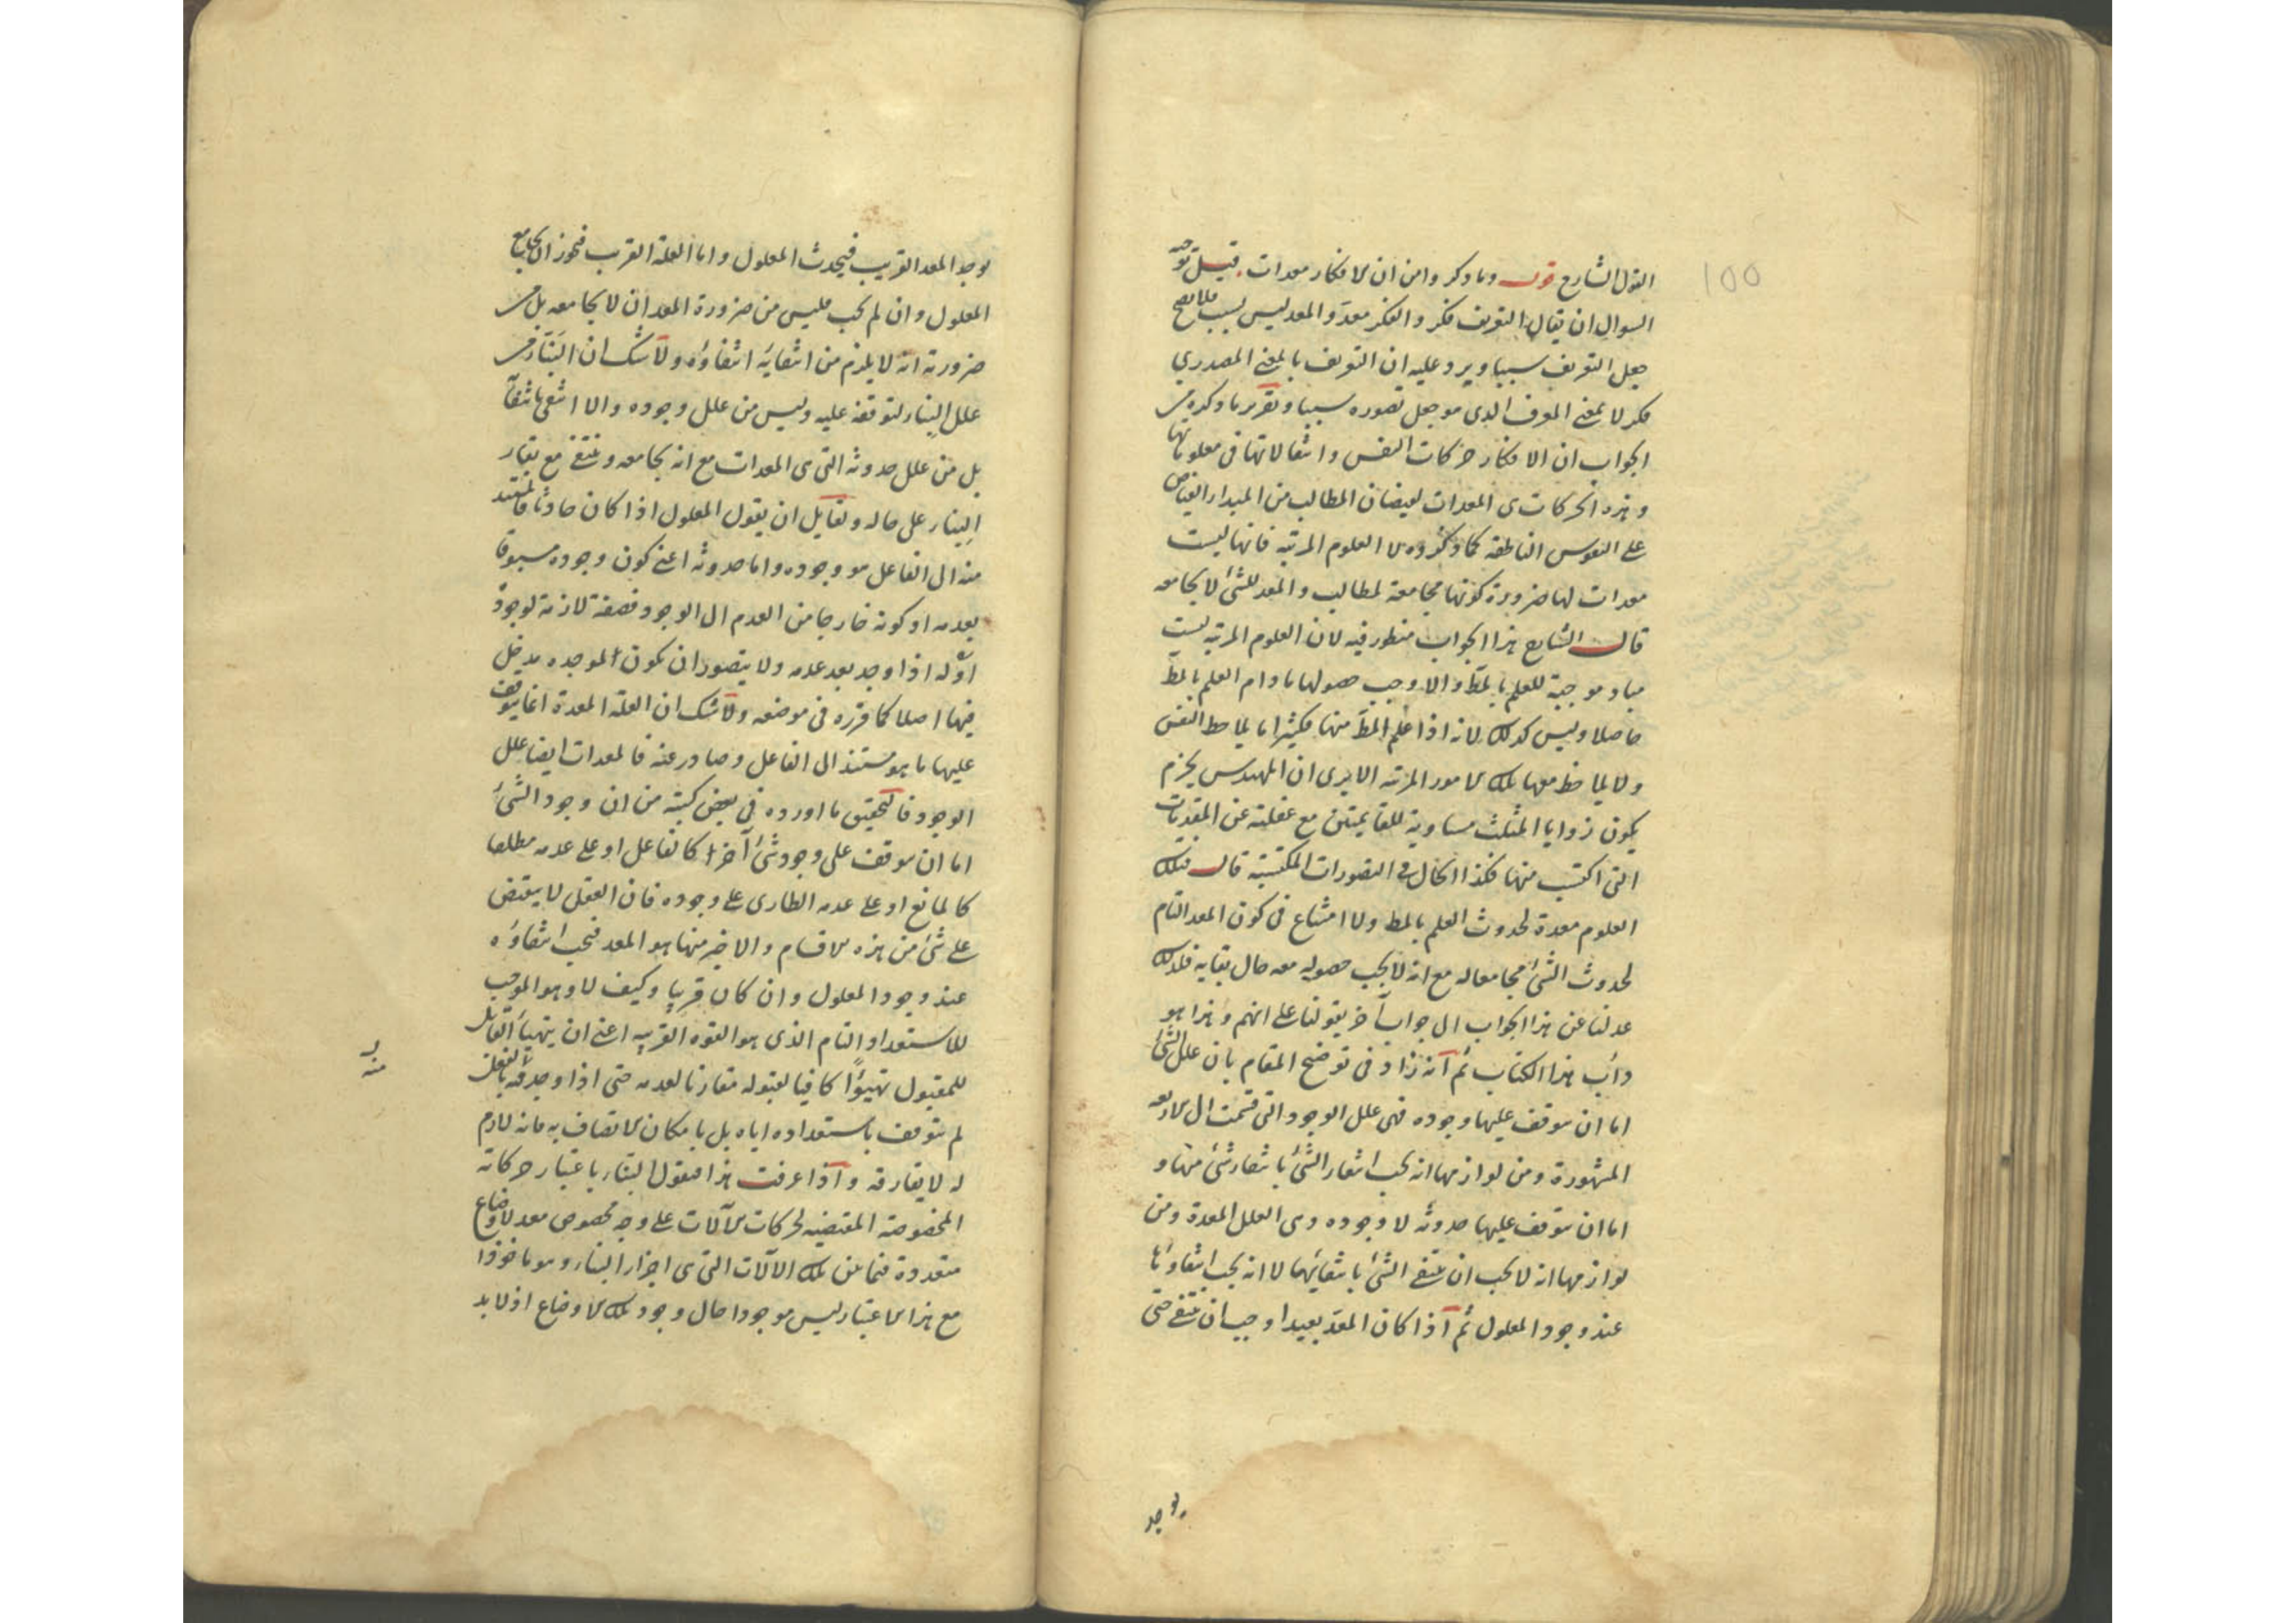 100
القول الشارح قوله وما ذكر وامن ان الافكار معدات قيل توجيه
السوال ان يقال التعريف فكر والفكر معد والمعد ليس بسبب فلا يصح
جعل التعريف سببا ويرد عليه ان التعريف بالمعنى المصدري
فكر لا بمعنى المعرف الذي هو جعل تصوره سببا وتقرير ما ذكره من
الجواب ان الافكار حركات النفس وانتقالاتها في معلوماتها
وهذه الحركات هي المعدات لفيضان المطالب من المبدا الفياض
على النفوس الناطقة كما ذكروه لا العلوم المرتبة فانها ليست
معدات لها ضرورة كونها مجامعة لمطالب والمعد للشئ لا يجامعه
قال الشارح هذا الجواب منظور فيه لان العلوم المرتبة ليست
مباد موجبة للعلم بالمط والا وجب حصولها ما دام العلم بالمط
حاصلا وليس كذلك لانه اذا علم المط منها فكثيرا ما يلاحظ النفس
ولا يلاحظ معها تلك الامور المرتبة الا يرى ان المهندس يجزم
بكون زوايا المثلث مساوية للقائمتين مع غفلته عن المقدمات
التي اكتسب منها فكذا الحال في التصورات المكتسبة قال فتلك
العلوم معدة لحدوث العلم بالمط ولا امتناع في كون المعد التام
لحدوث الشئ مجامعا له مع انه لا يجب حصوله معه حال بقايه فلذلك
عدلنا عن هذا الجواب الى جواب آخر بقولنا على انهم وهذا هو
دأب هذا الكتاب ثم انه زاد في توضيح المقام بان علل الشئ
اما ان يتوقف عليها وجوده فهى علل الوجود التي قسمت الى الاربعة
المشهورة ومن لوازمها انه يجب انتفاء الشئ بانتفاء شئ منها و
اما ان يتوقف عليها حدوثه لا وجوده وهى العلل المعدة ومن
لوازمها انه لا يجب ان ينتفى الشئ بانتفائها لا انه يجب انتفاؤها
عند وجود المعلول ثم اذا كان المعد بعيدا وجب ان ينتفى حتى
يوجد
يوجد المعد القريب فيحدث المعلول واما العلة القريب فيجوز ان يجامع
المعلول وان لم يجب فليس من ضرورة المعد ان لا يجامعه بل من
ضرورته انه لا يلزم من انتفايه انتفاؤه ولا شك ان البناء من
علل البناء لتوقفه عليه وليس من علل وجوده والا انتفى بانتفائه
بل من علل حدوثه التي هي المعدات مع انه يجامعه وينتفى مع بقاء
البناء على حاله ولقايل ان يقول المعلول اذا كان حادثا فالمستند
منه الى الفاعل هو وجوده واما حدوثه اعنى كون وجوده مسبوقا
بعدمه او كونه خارجا من العدم الى الوجود فصفة لازمة لوجوده
اذا وجد بعد عدمه ولا يتصور ان يكون لموجده مدخل
فيها اصلا كما قرره في موضعه ولا شك ان العلة المعدة انما يتوقف
عليها ما هو مستند الى الفاعل وصادر عنه فالمعدات ايضا علل
الوجود فالتحقيق ما اورده في بعض كتبه من ان وجود الشئ
اما ان يتوقف على وجود شئ آخر كالفاعل او على عدمه مطلقا
كالمانع او على عدمه الطارى على وجوده فان العقل لا ينقبض
على شئ من هذه الاقسام والاخير منها هو المعد فيجب انتفاؤه
عند وجود المعلول وان كان قريبا وكيف لا وهو الموجب
للاستعداد التام الذي هو القوة القريبة اعنى ان يتهيأ القابل
للمقبول تهيؤا كافيا لقبوله مقارنا لعدمه حتى اذا وجد فيه بالفعل
لم يتوقف باستعداده اياه بل بامكان الاتصاف به فانه لازم
له لا يفارقه واذا عرفت هذا فنقول البناء باعتبار حركاته
المخصوصة المقتضيه لحركات الآلات على وجه مخصوص معد لاوضاع
متعددة فيما بين تلك الآلات التي هي اجزاء البناء وهو ماخوذا
مع هذا الاعتبار ليس موجودا حال وجود تلك الاوضاع اذ لا بد
منه